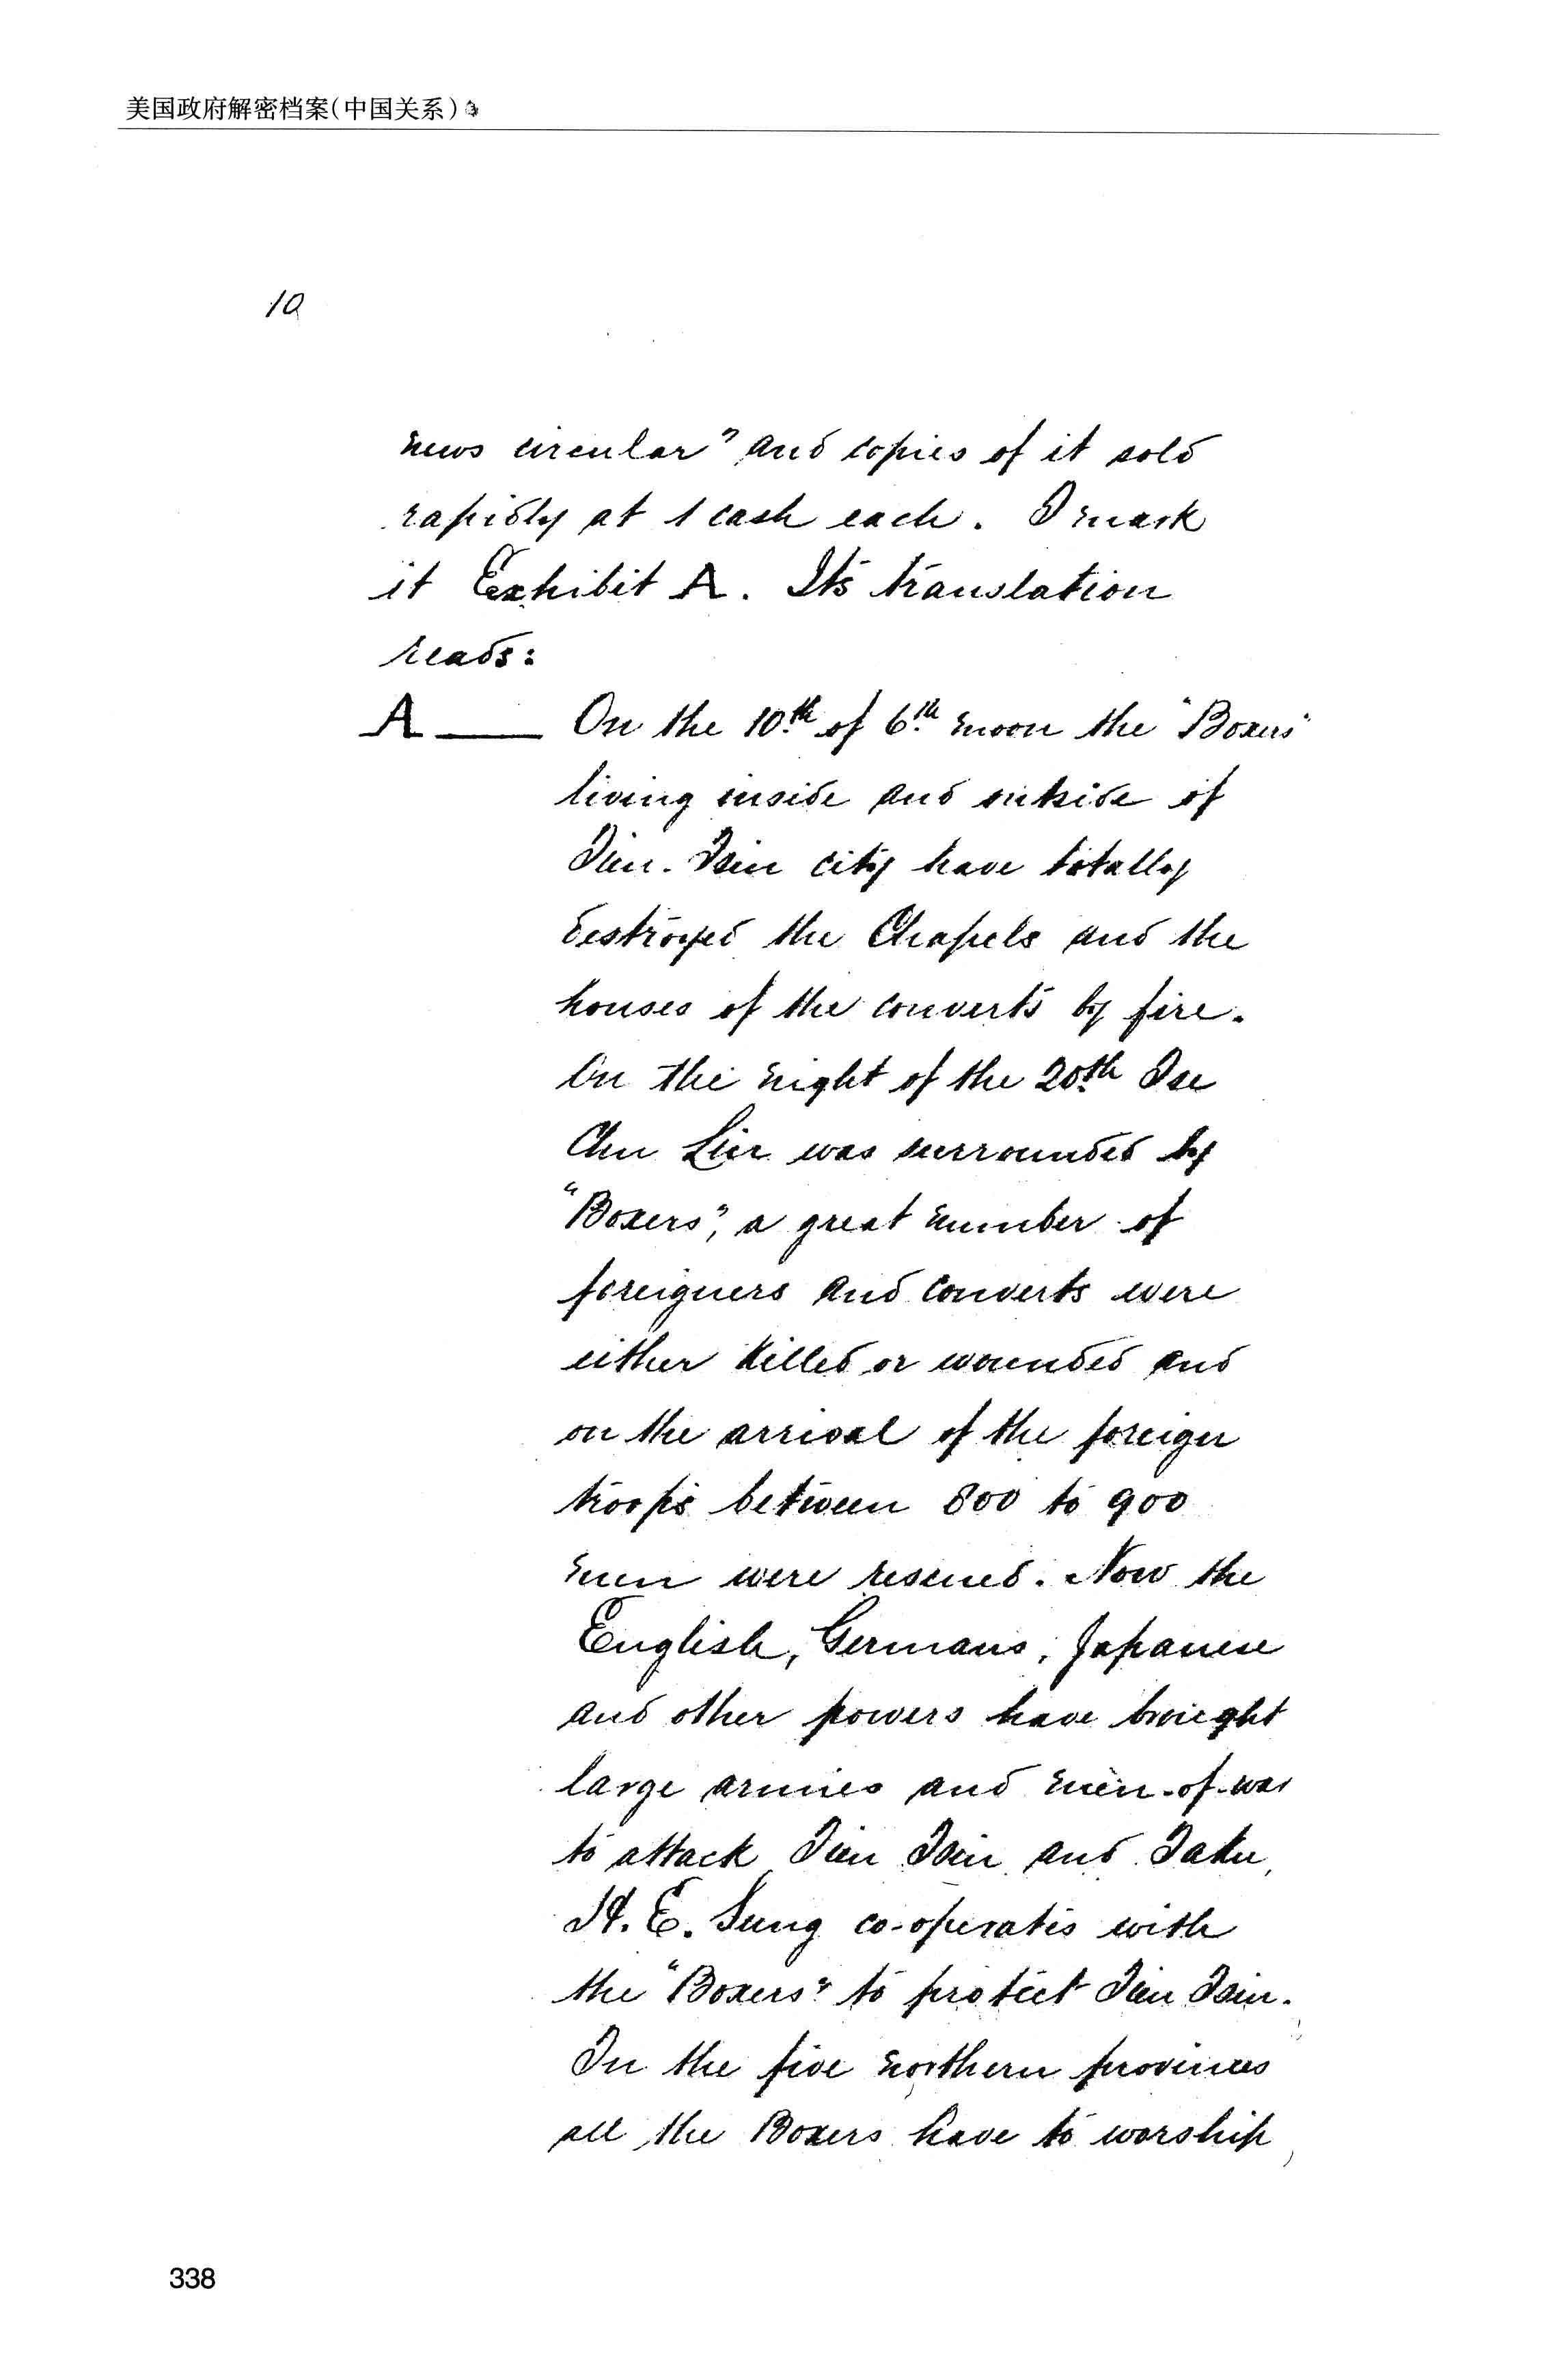 美国政府解密档案(中国关系)
10
news circular" and copies of it sold
rapidly at 1 cash each. I mark
it Exhibit A. Its translation
reads:
A — On the 10th of 6th moon the "Boxers"
living inside and outside of
Tien-Tsin city have totally
destroyed the Chapels and the
houses of the converts by fire.
On the night of the 20th Tse
Chu Lin was surrounded by
"Boxers", a great number of
foreigners and converts were
either killed or wounded and
on the arrival of the foreign
troops between 800 to 900
men were rescued. Now the
English, Germans, Japanese
and other powers have brought
large armies and men-of-war
to attack Tien Tsin and Taku,
H. E. Sung co-operates with
the "Boxers" to protect Tien Tsin.
In the five northern provinces
all the Boxers have to worship
338